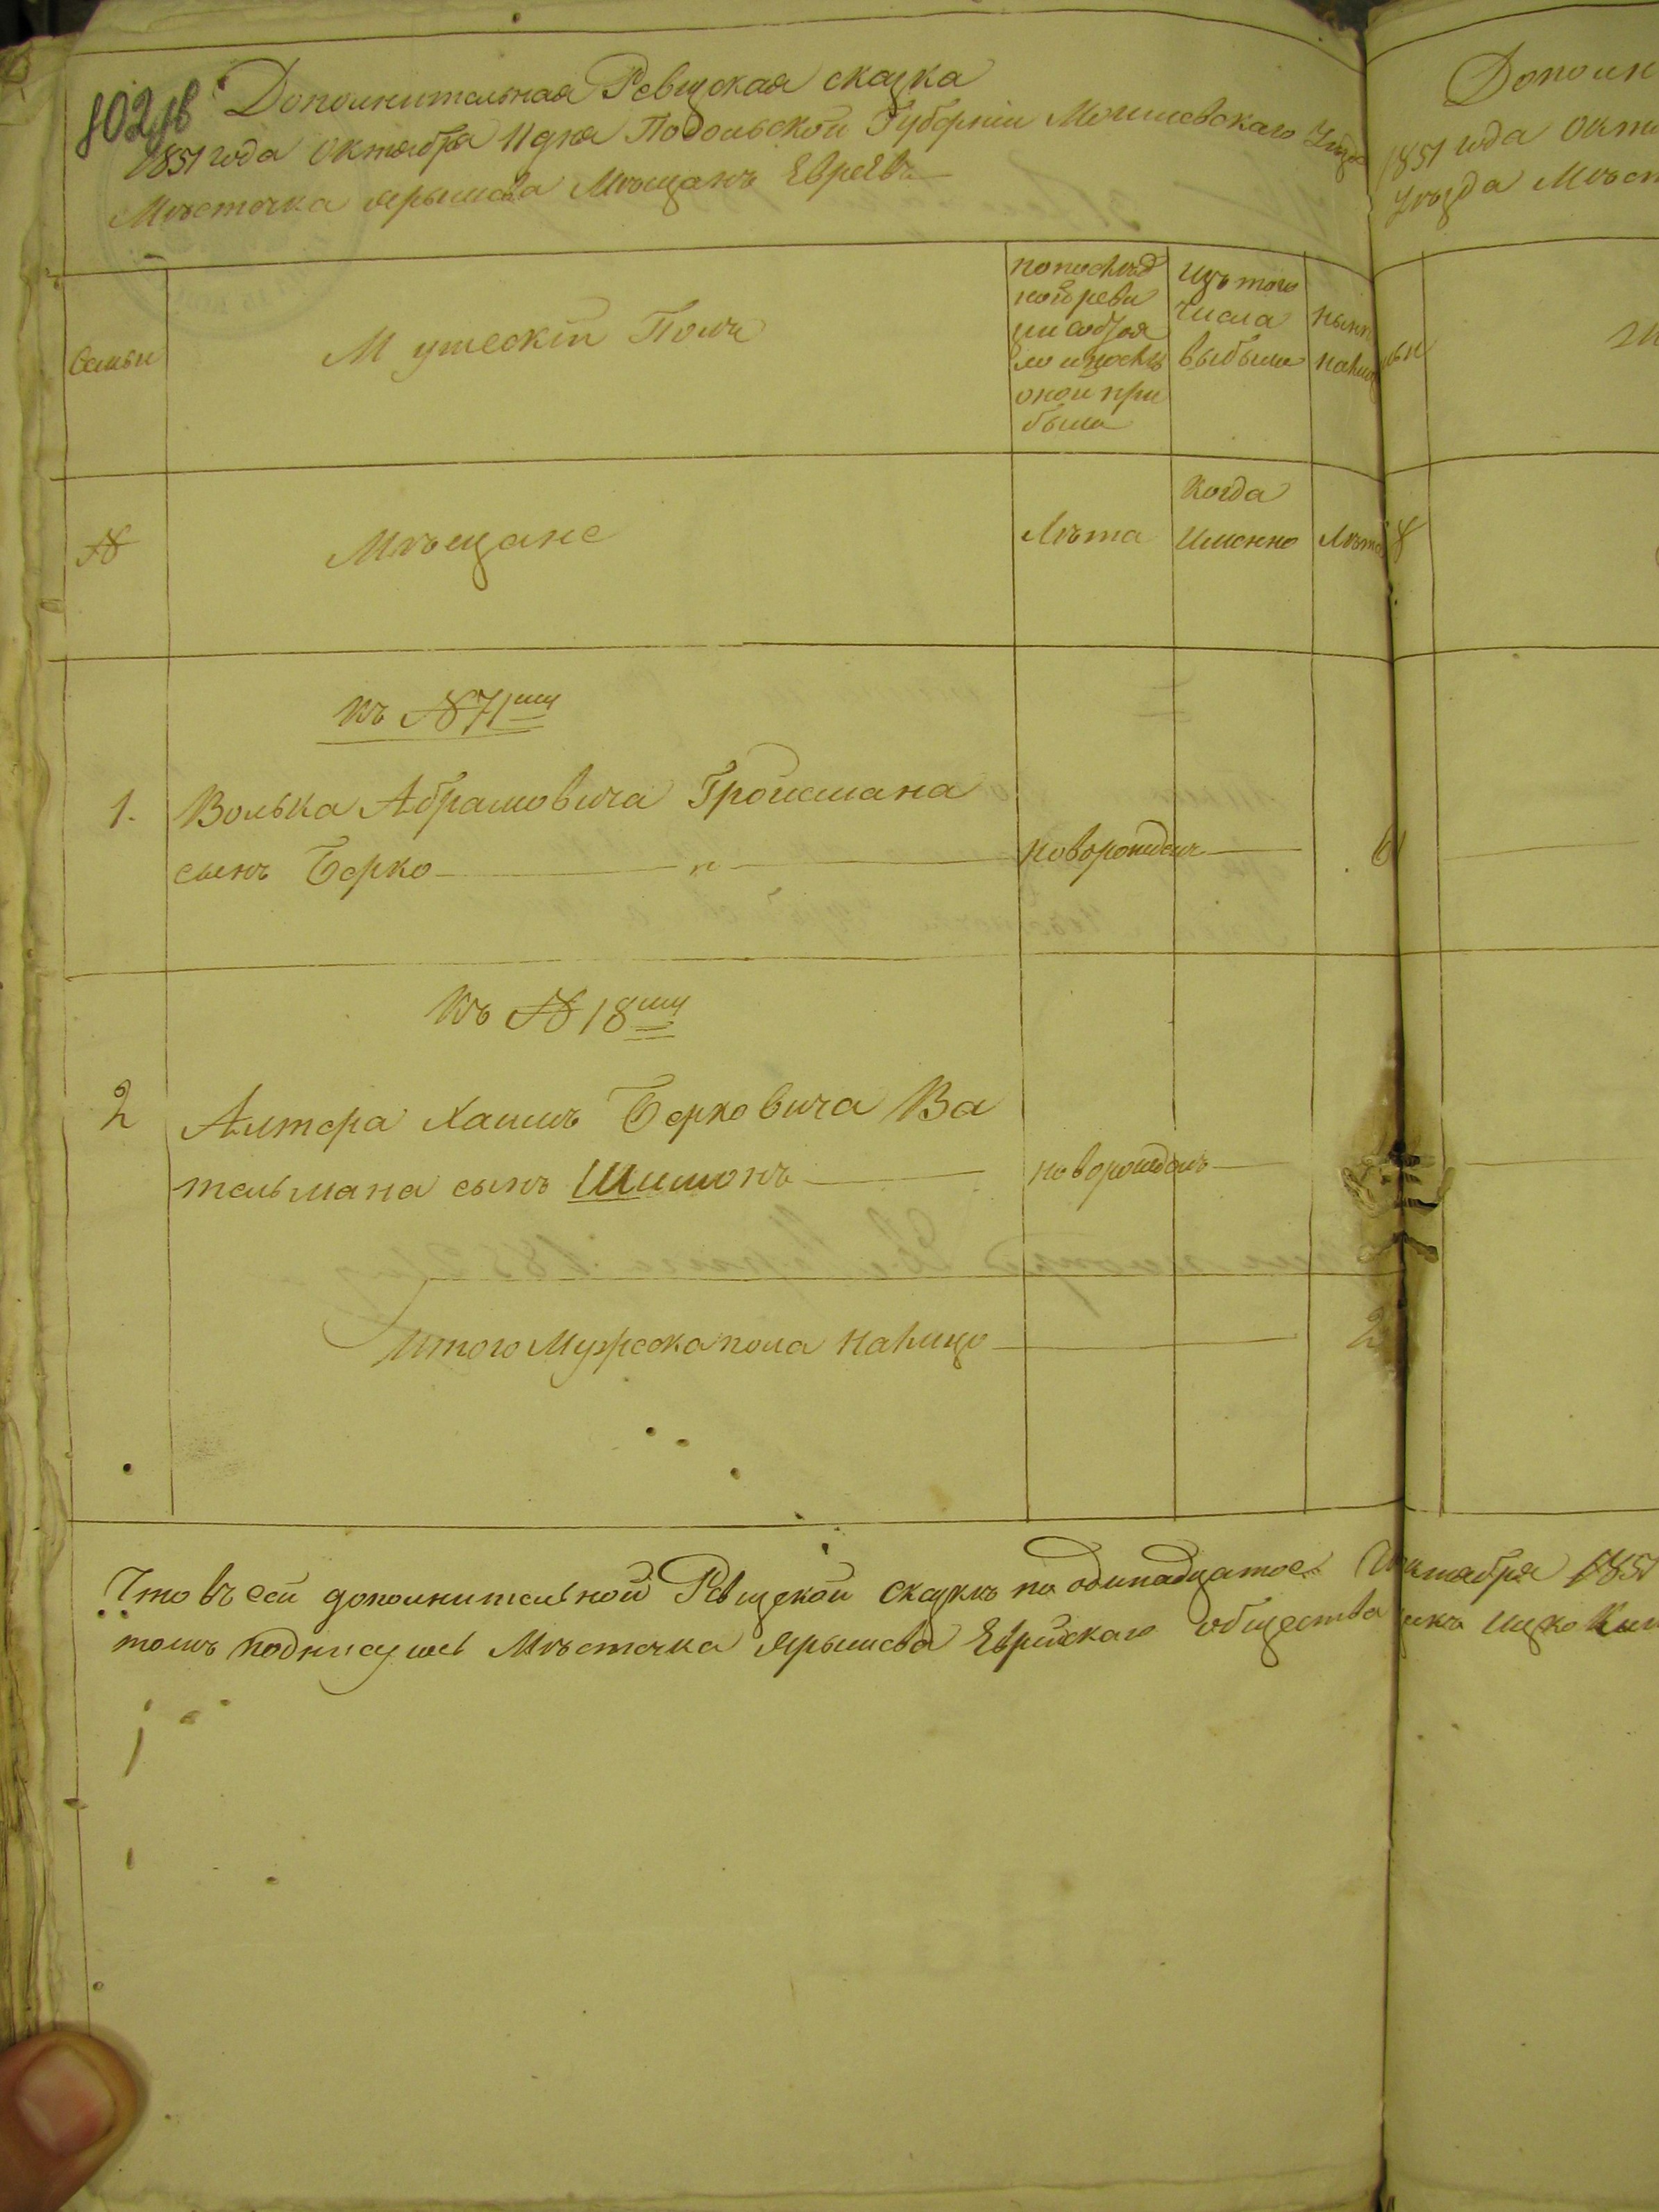 802 об
Дополнительная Ревизская сказка
1851 года Октября 11 дня Подольской Губерніи Могилевскаго Уезда
Мѣстечка Ярышева Мѣщанъ Евреевъ
Дополн
1851 года Октя
Уѣзда Мѣст
Семьи
Мужескій Полъ
по послѣд
ной реви
зіи состоя
ло и послѣ
оной при
было
Изъ того
числа
выбыло
нынѣ
налиц
№
Мѣщане
Лѣта
Когда
Именно
Лѣта
Къ № 71му
1. Волька Абрамовича Гройсмана
сынъ Берко — „ — новорожденъ —
Къ № 18му
2 Алтера Хаимъ Берковича Ва
тельмана сынъ Шимонъ — новорожденъ —
Итого Мужеска пола налицо — 2
Что въ сей дополнительной Ревизской сказкѣ по одинадцатое Октября 1851
томъ подписуемся Мѣстечка Ярышева Еврейскаго общества